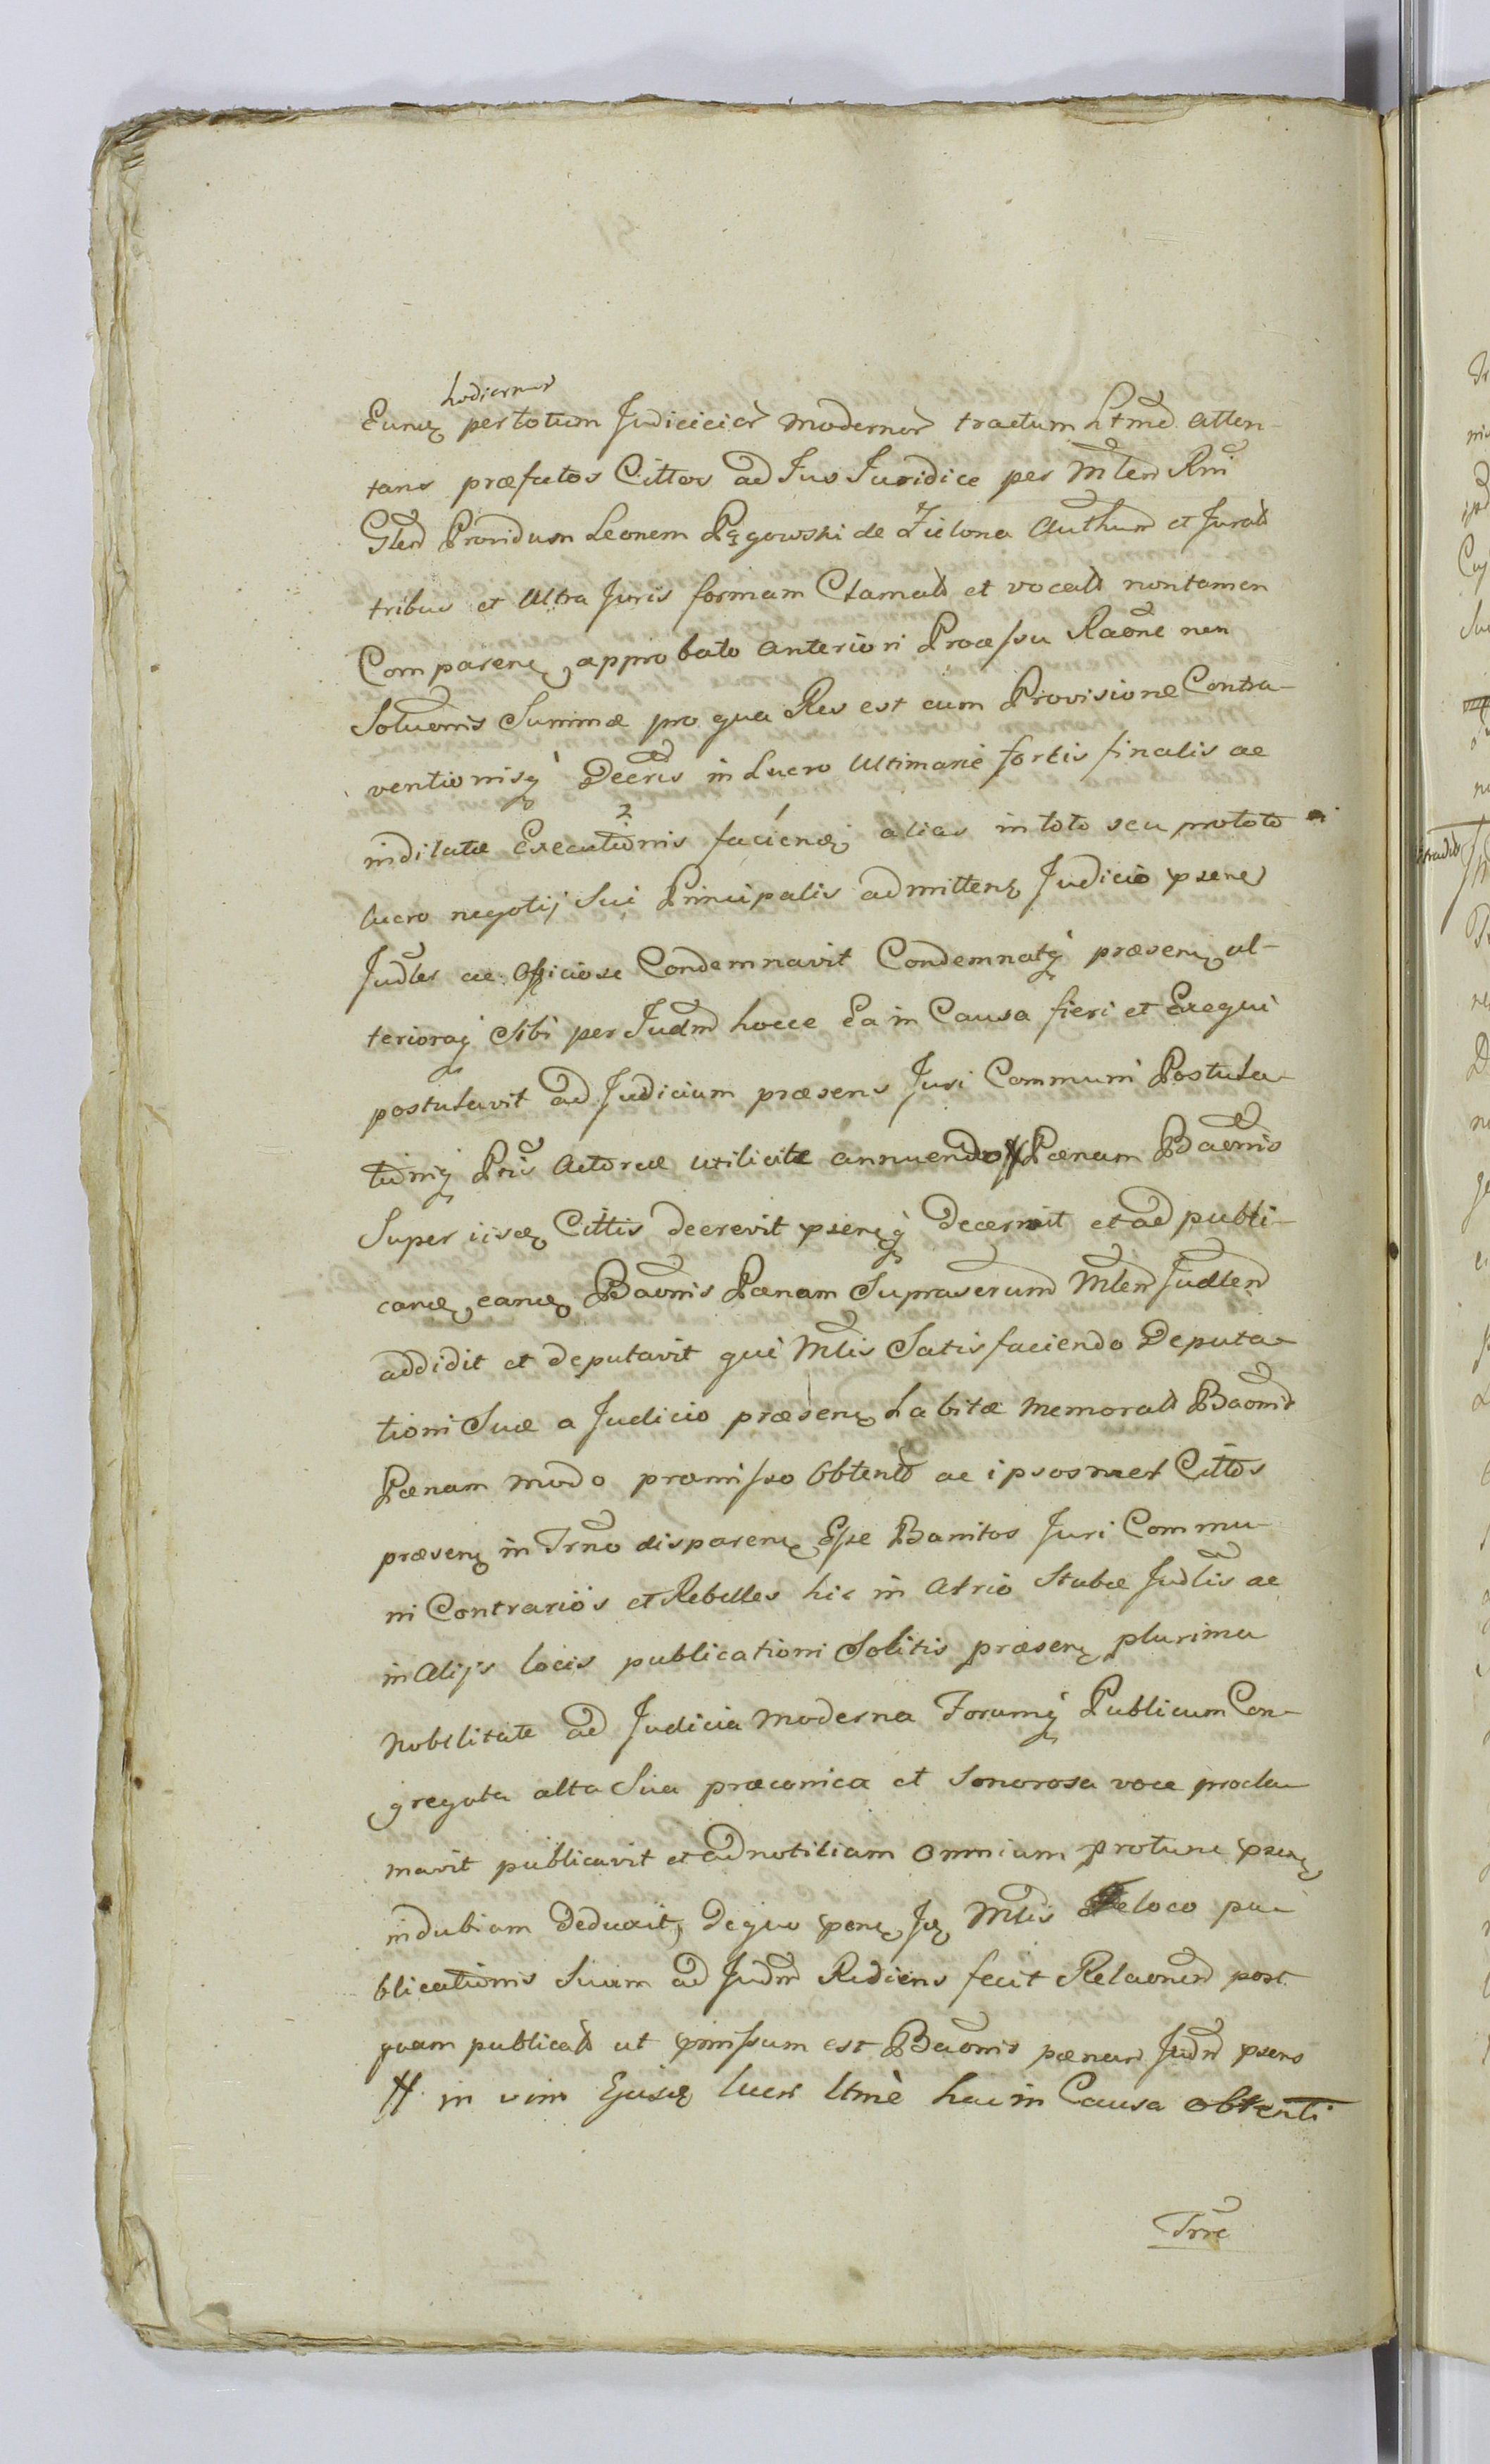 hodiernor
Eund pertotum Judiciicior modernor tractum htmd atten-
tans præfatos Cittos ad Jus Juridice per Mlem Rni
Glem Providum Leonem Pągowski de Zielona Authum et Jurat
tribus et ultra Juris formam Clamat et vocat nontamen
Comparen approbato anteriori Processu Raõne non
Soluõnis Summæ pro qua Res est cum Provisione Contra-
ventionisq Decris in Lucro Ultimarie fortis finalis ac
indilatæ Executionis faciend alias in toto seu prototo
lucro negotij sui Principalis admitten Judicio psene
Judlr ac officiose Condemnavit Condemnatq præsen ul-
terioraq sibi per Judm hocce Ea in Causa fieri et Exequi
postulavit ad Judicium præsens Juri Communi Postula-
tioniq Ptis Actoreæ utilitate annuendo # Pænam Baõnis
Super iisd Cittis decrevit psenq decernit et ad publi-
cand eand Baõnis Pænam Supraserum Mlem Judlem
addidit et deputavit qui Mlis Satisfaciendo Deputa-
tioni Suæ a Judicio præsen habitæ memorat Baõnis
Pænam modo præmisso obtent ac ipsosmet Cittos
præsen in Trno disparen Esse Banitos Juri Commu-
ni Contrarios et Rebelles hic in atrio Stubæ Judlis ac
in alijs locis publicationi Solitis præsen plurima
nobilitate ad Judicia moderna Forumq Publicum Con-
gregata alta Sua præconica et sonorosa voce procla-
mavit publicavit et ad notitiam omnium protunc psen
indubiam deduxit, de quo psen Jd Mlis de loco pu-
blicationis Suam ad Judm Rediens fecit Relaõnem post
quam publicat ut pmissum est Baõnis pænam Judm psens
# in vim Ejusd lucri Utmè hac in Causa obtenti
Trre